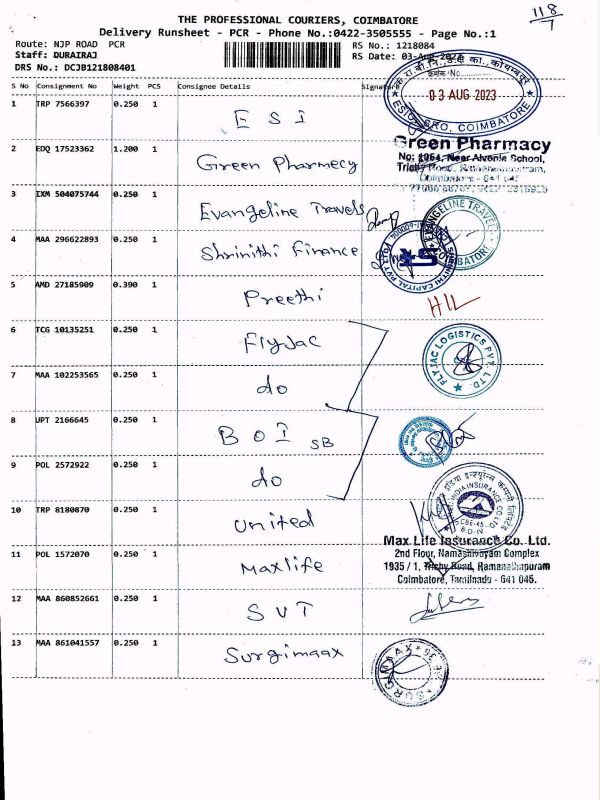 118/1
THE PROFESSIONAL COURIERS, COIMBATORE
Delivery Runsheet - PCR - Phone No.:0422-3505555 - Page No.:1
Route: NJP ROAD PCR
RS No.: 1218084
Staff: DURAIRAJ
RS Date: 03-Aug-2023
DRS No.: DCJB121808401
S No Consignment No Weight PCS Consignee Details Signature
1 TRP 7566397 0.250 1 E S I
03 AUG 2023
COIMBATORE
2 EDQ 17523362 1.200 1 Green Pharmecy
Green Pharmacy
No: 1964, Near Alvonia School,
3 IXM 504075744 0.250 1 Evangeline Travels
EVANGELINE TRAVELS
4 MAA 296622893 0.250 1 Shrinithi Finance
SHRINITHI CAPITAL PVT LTD
5 AMD 27185909 0.390 1 Preethi
HIL
6 TCG 10135251 0.250 1 FlyJac
FLYJAC LOGISTICS PVT. LTD.
7 MAA 102253565 0.250 1 do
8 UPT 2166645 0.250 1 B O I SB
9 POL 2572922 0.250 1 do
10 TRP 8180870 0.250 1 United
INDIA INSURANCE CO LTD
11 POL 1572070 0.250 1 Maxlife
Max Life Insurance Co. Ltd.
2nd Floor, Namashivayam Complex
1935 / 1, Trichy Road, Ramanathapuram
Coimbatore, Tamilnadu - 641 045.
12 MAA 860852661 0.250 1 S V T
13 MAA 861041557 0.250 1 Surgimaax
SURGIMAAX